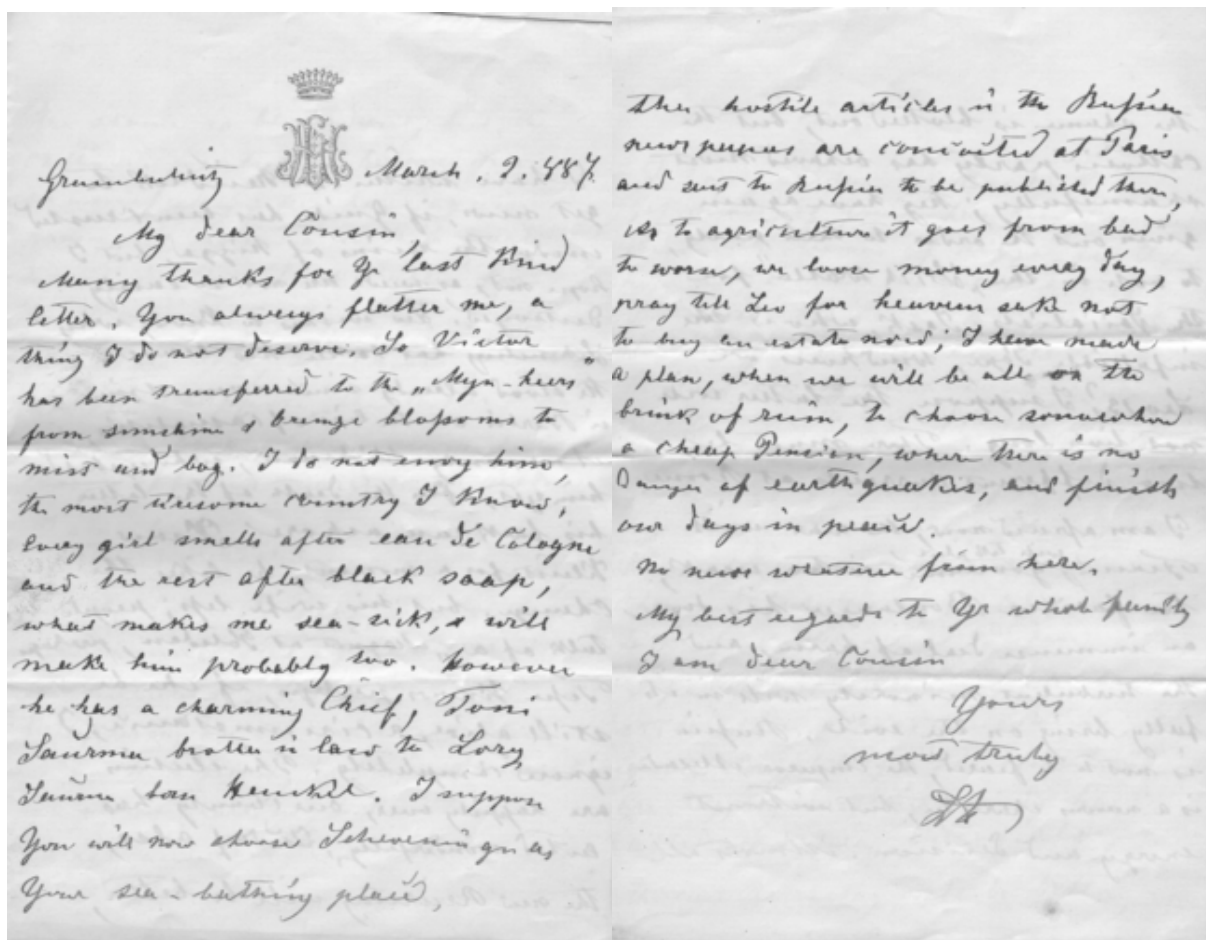 Grambschütz March. 2. 887.
My dear Cousin,
Many thanks for Yr last kind
letter. You always flatter me, a
thing I do not deserve. So Victor
has been transferred to the „Myn-heers"
from sunshine & orange blossoms to
mist and bog. I do not envy him,
the most tiresome country I know,
every girl smells after eau de Cologne
and the rest after black soap,
what makes me sea-sick, & will
make him probably too. However
he has a charming Chief, Toni
Saurma brother in law to Lory
Saurma born Henckel. I suppose
You will now choose Scheveningu as
Your sea-bathing place,
the hostile articles in the Russian
newspapers are concocted at Paris
and sent to Russia to be published there,
As to agriculture it goes from bad
to worse, we loose money every day,
pray tell Leo for heavens sake not
to buy an estate now; I have made
a plan, when we will be all on the
brink of ruin, to choose somewhere
a cheap Pension, where there is no
Danger of earthquakes, and finish
our days in peace.
No news whatever from here.
My best regards to Yr whole family
I am dear Cousin
Yours
most truly